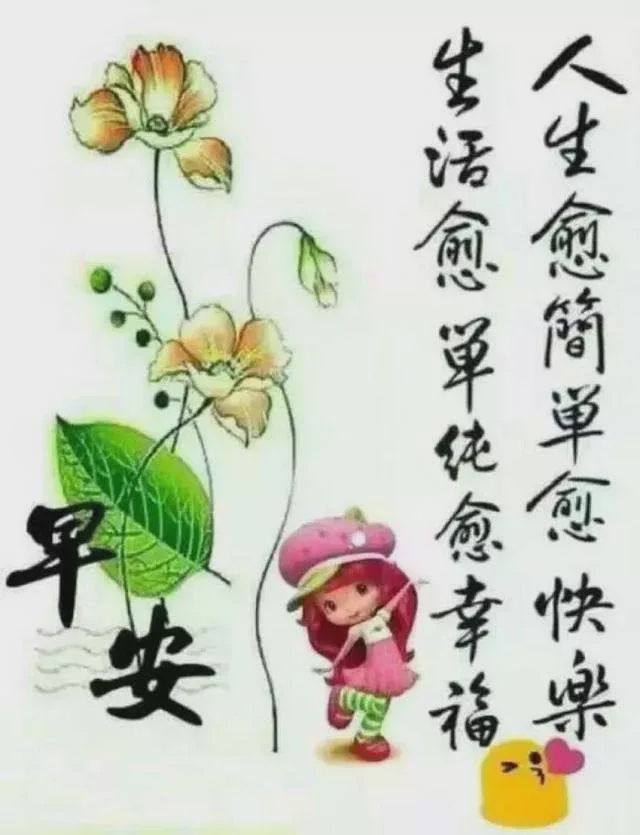 人生愈簡単愈快樂
生活愈單纯愈幸福
早安